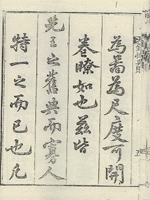 為啚為尺度可開
卷瞭如也茲皆
先王之舊典而寡人
特一之而已也凡